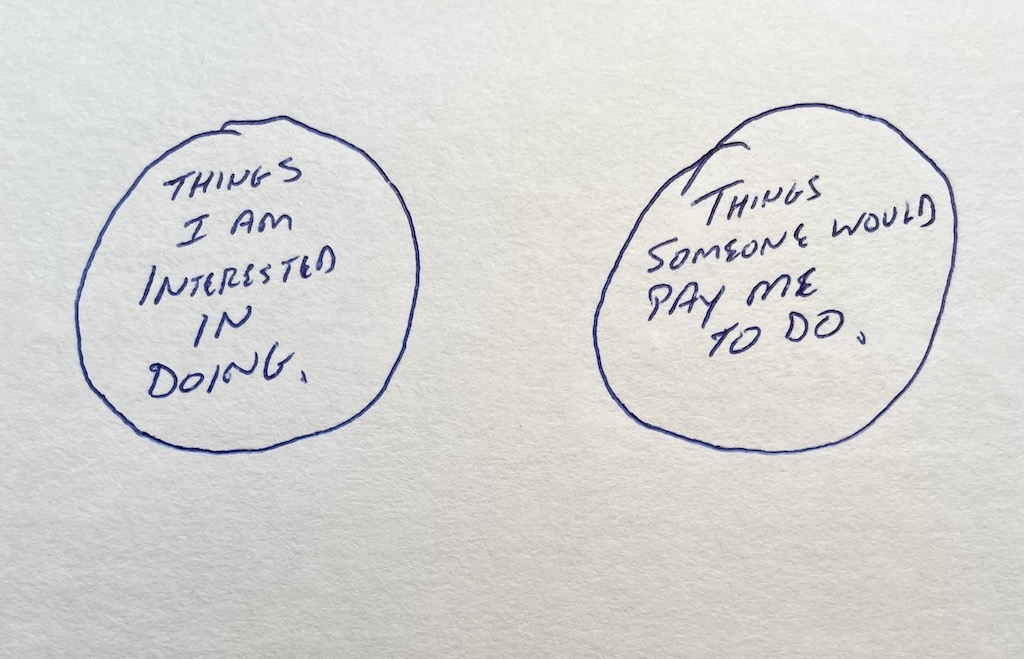 THINGS
I AM
INTERESTED
IN
DOING.
THINGS
SOMEONE WOULD
PAY ME
TO DO.